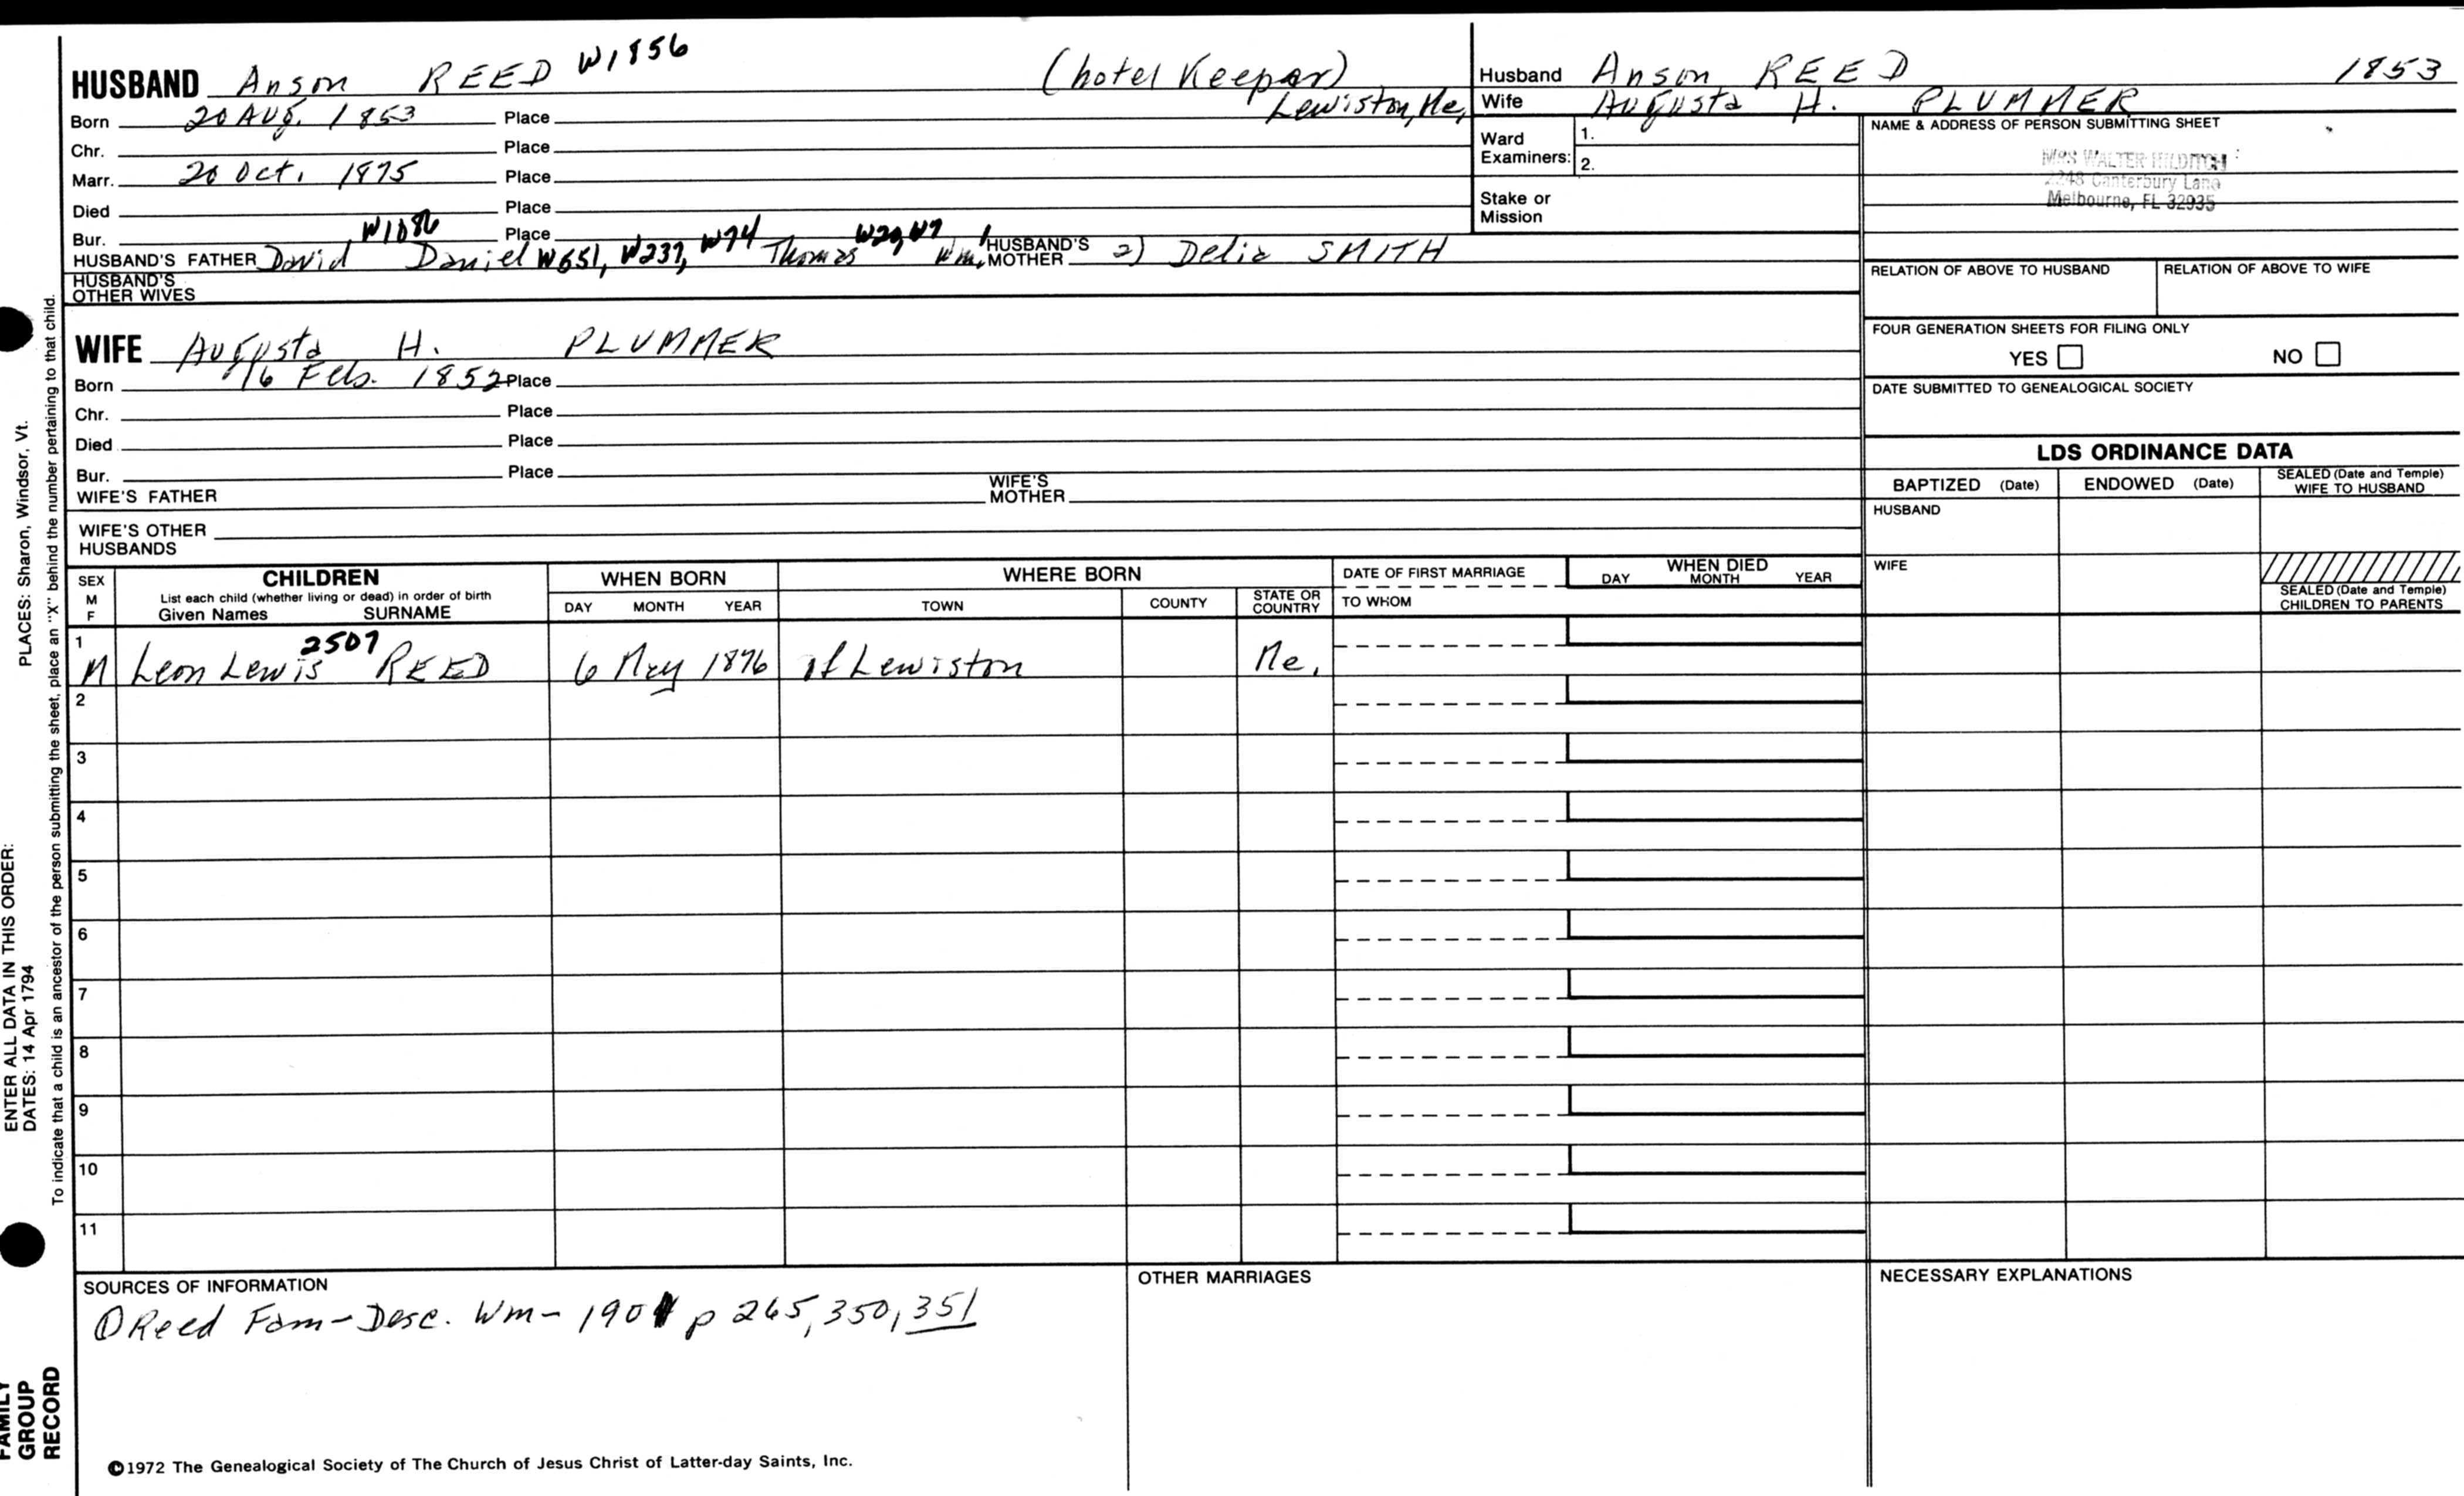 HUSBAND Anson REED W1856 (hotel Keeper)
Born 20 Aug. 1853 Place Lewiston, Me,
Chr. Place
Marr. 20 Oct. 1875 Place
Died Place
Bur. Place
W1086 W74 W29, W7
HUSBAND'S FATHER David Daniel W651, W237, Thomas Wm.1 HUSBAND'S MOTHER 2) Delia SMITH
HUSBAND'S OTHER WIVES
WIFE Augusta H. PLUMMER
Born 16 Feb. 1852 Place
Chr. Place
Died Place
Bur. Place
WIFE'S FATHER WIFE'S MOTHER
WIFE'S OTHER HUSBANDS
Husband Anson REED 1853
Wife Augusta H. PLUMMER
Ward Examiners: 1.
2.
Stake or Mission
NAME & ADDRESS OF PERSON SUBMITTING SHEET
MRS WALTER HILDITCH
2248 Canterbury Lane
Melbourne, FL 32935
RELATION OF ABOVE TO HUSBAND RELATION OF ABOVE TO WIFE
FOUR GENERATION SHEETS FOR FILING ONLY
YES NO
DATE SUBMITTED TO GENEALOGICAL SOCIETY
LDS ORDINANCE DATA
BAPTIZED (Date) ENDOWED (Date) SEALED (Date and Temple) WIFE TO HUSBAND
HUSBAND
WIFE
SEALED (Date and Temple) CHILDREN TO PARENTS
SEX M F CHILDREN
List each child (whether living or dead) in order of birth
Given Names SURNAME
WHEN BORN
DAY MONTH YEAR
WHERE BORN
TOWN COUNTY STATE OR COUNTRY
DATE OF FIRST MARRIAGE
TO WHOM
WHEN DIED
DAY MONTH YEAR
1 2507
M Leon Lewis REED 6 May 1876 of Lewiston Me.
2
3
4
5
6
7
8
9
10
11
SOURCES OF INFORMATION
① Reed Fam - Desc. Wm - 1901 p 265, 350, 351
OTHER MARRIAGES
NECESSARY EXPLANATIONS
©1972 The Genealogical Society of The Church of Jesus Christ of Latter-day Saints, Inc.
PLACES: Sharon, Windsor, Vt.
ENTER ALL DATA IN THIS ORDER:
DATES: 14 Apr 1794
To indicate that a child is an ancestor of the person submitting the sheet, place an "X" behind the number pertaining to that child.
FAMILY
GROUP
RECORD